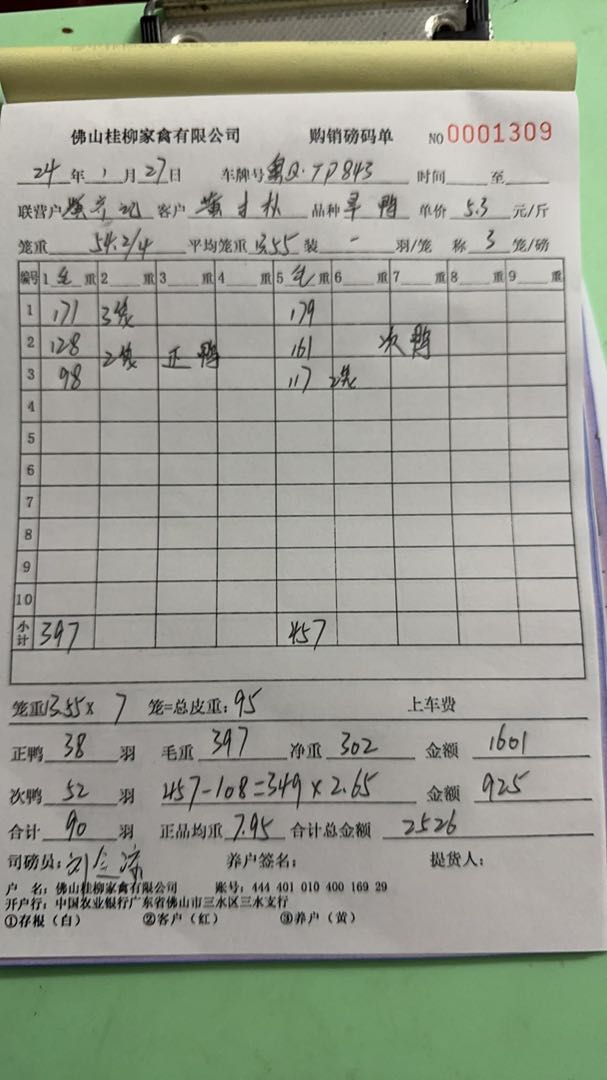 佛山桂柳家禽有限公司 购销磅码单 NO 0001309
24 年 1 月 27 日 车牌号 粤Q·TP843 时间 至
联营户 客户 品种 旱鸭 单价 5.3 元/斤
笼重 54.2/4 平均笼重 13.55 装 - 羽/笼 称 3 笼/磅
编号 1 毛 重 2 重 3 重 4 重 5 毛 重 6 重 7 重 8 重 9 重
1 171 3笼 179
2 128 2笼 正鸭 161 次鸭
3 98 117 2笼
4
5
6
7
8
9
10
小计 397 457
笼重 13.55 × 7 笼=总皮重: 95 上车费
正鸭 38 羽 毛重 397 净重 302 金额 1601
次鸭 52 羽 457-108=349×2.65 金额 925
合计 90 羽 正品均重 7.95 合计总金额 2526
司磅员: 养户签名: 提货人:
户 名: 佛山桂柳家禽有限公司 账号: 444 401 010 400 169 29
开户行: 中国农业银行广东省佛山市三水区三水支行
①存根（白） ②客户（红） ③养户（黄）